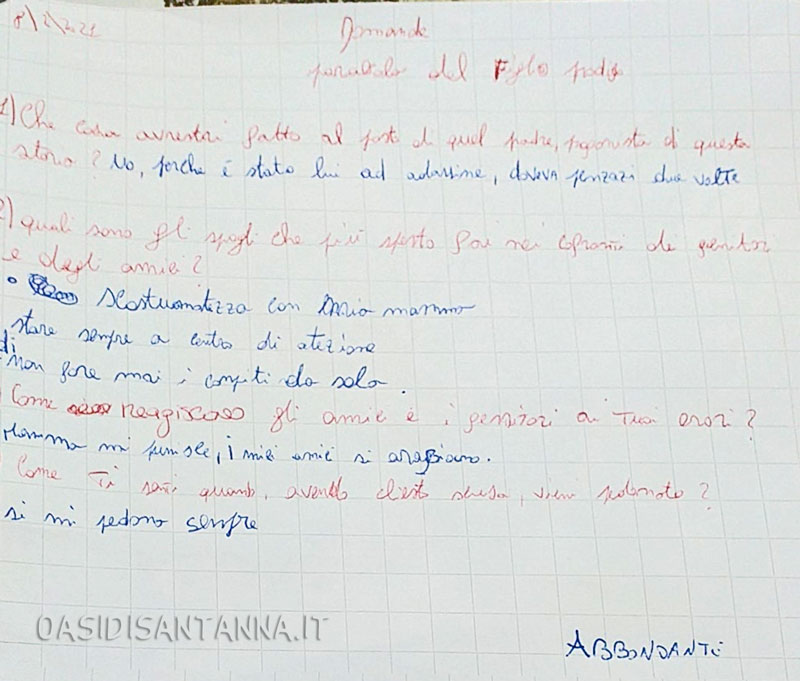 8\2\2021
Domande
parabola del Figlio
1) Che cosa avresti fatto al posto di quel padre, di questa
storia? No, perche è stato lui ad, doveva penzazi due volte
2) quali sono gli sbagli che più spesso fai nei confronti de genitori
e degli amici?
• Scostumatezza con mia mamma
stare sempre a centro di atezione
di non fare mai i compiti da sola.
Come Reagiscono gli amici e i genitori ai Tuoi erori?
Mamma mi punisce, i miei amici si arabiano.
Come Ti senti quando, avendo chiesto scusa, vieni
si mi perdono sempre
OASIDISANTANNA.IT
ABBONDANTE